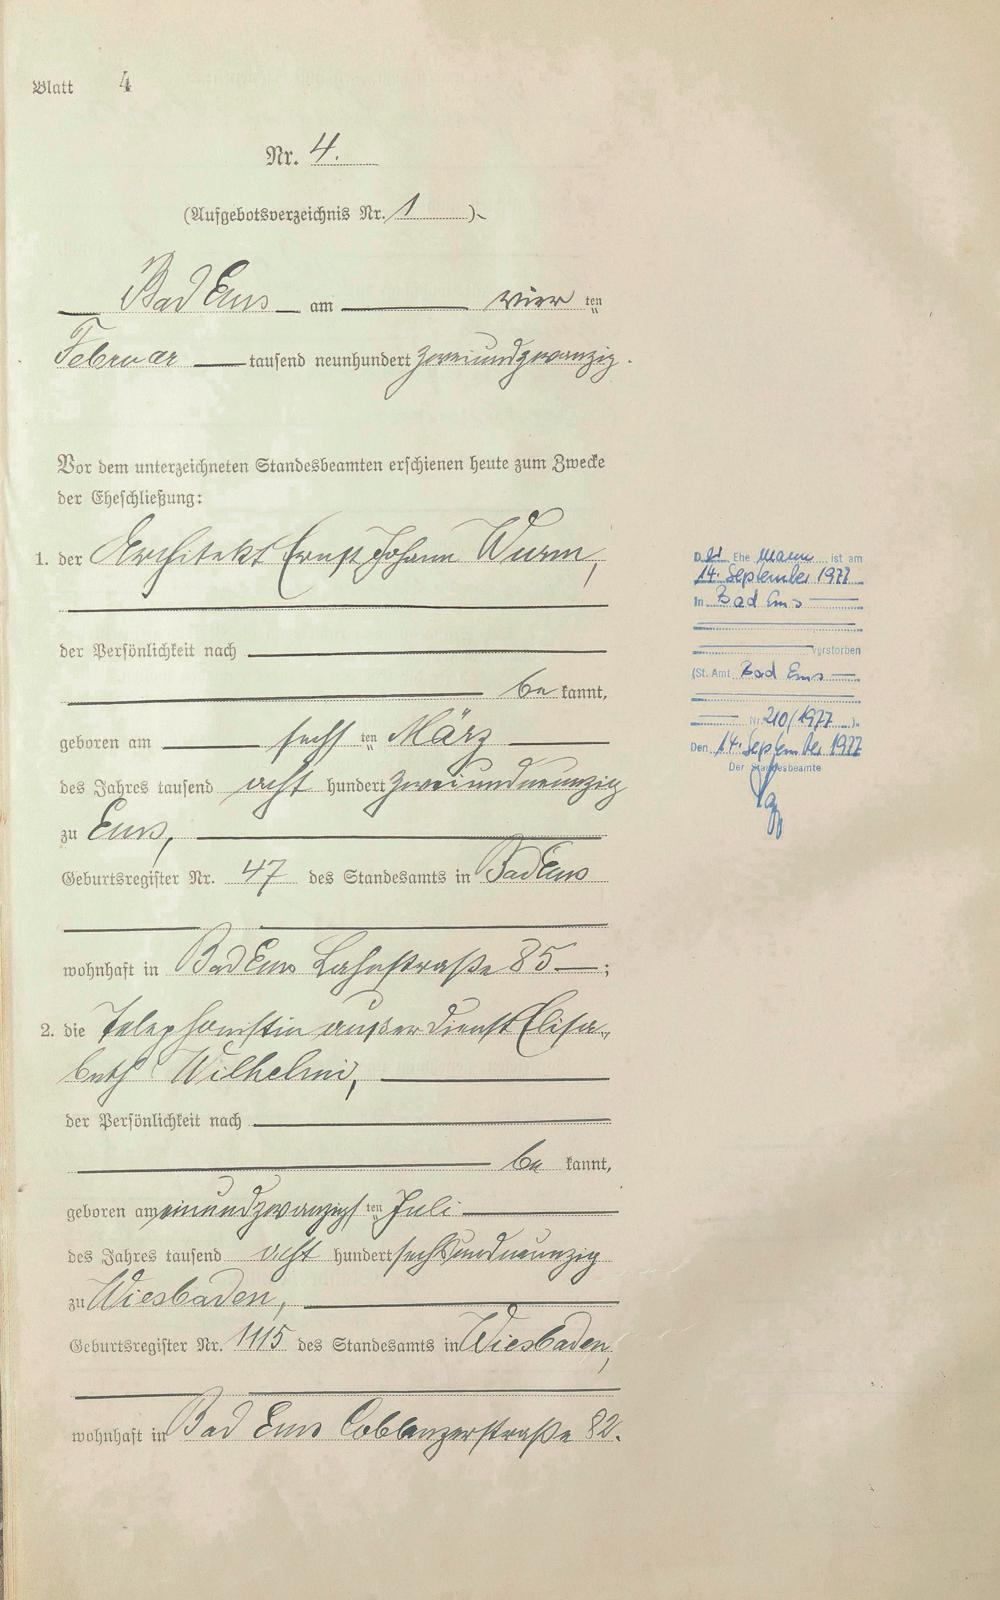 Blatt 4
Nr. 4.
(Aufgebotsverzeichnis Nr. 1 ).
Bad Ems am vier ten
Februar tausend neunhundert zweiundzwanzig.
Vor dem unterzeichneten Standesbeamten erschienen heute zum Zwecke
der Eheschließung:
1. der Architekt Ernst Johann Wurm,
der Persönlichkeit nach
be kannt,
geboren am sechs ten März
des Jahres tausend acht hundert zweiundneunzig
zu Ems,
Geburtsregister Nr. 47 des Standesamts in Bad Ems
wohnhaft in Bad Ems Lahnstraße 85 ;
2. die Telephonistin außer Dienst Elisa-
beth Wilhelmi,
der Persönlichkeit nach
be kannt,
geboren am einundzwanzigs ten Juli
des Jahres tausend acht hundert sechsundneunzig
zu Wiesbaden,
Geburtsregister Nr. 1115 des Standesamts in Wiesbaden,
wohnhaft in Bad Ems Coblenzerstraße 82.
D er Ehe mann ist am
14. September 1977
in Bad Ems
verstorben
(St. Amt Bad Ems
Nr. 210/1977 ).
Den 14. September 1977
Der Standesbeamte